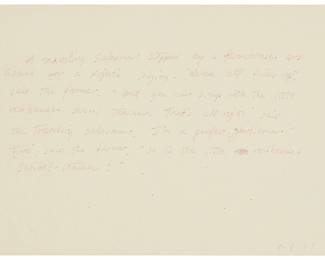 A traveling salesman stopped by a farmhouse and
asked for a night's lodging. "We're all filled up,"
said the farmer, "but you can sleep with the little
red-haired school teacher." "That's all right," said
the traveling salesman, "I'm a perfect gentleman."
"Fine," said the farmer, "so is the little red-haired
school-teacher!"